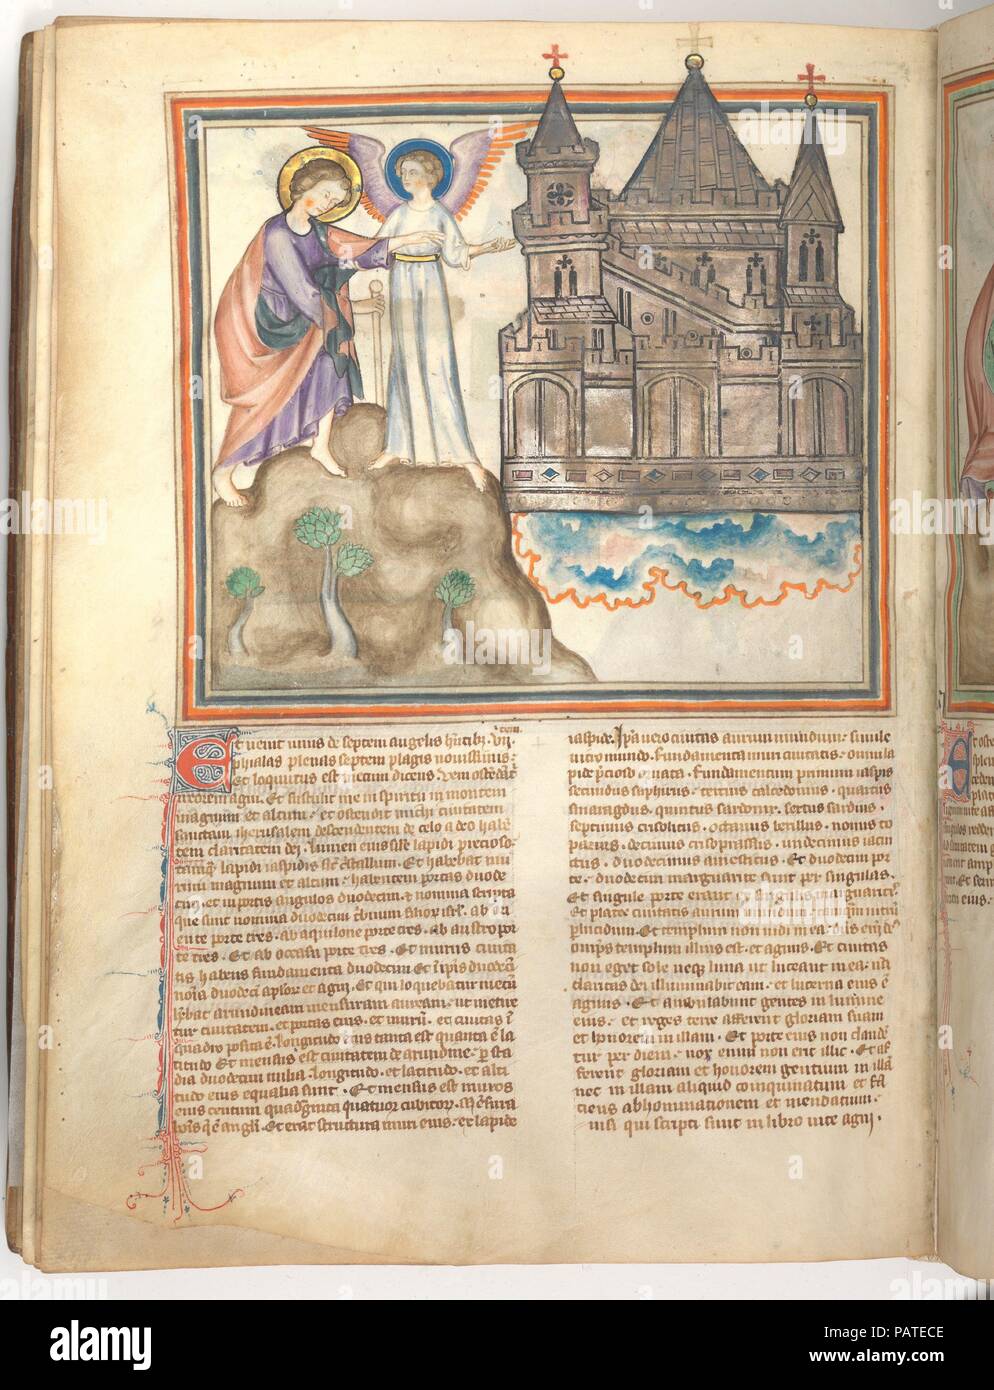 Et venit unus de septem angelis hñtibz. vij.
phialas plenas septem plagis novissimis:
Et loquutus est mecum dicens. Veni ostēdā t̄
uxorem agni. Et sustulit me in spiritu in montem
magnum et altum: et ostendit michi civitatem
sanctam iherusalem descendentem de celo a deo habē
tem claritatem dei. lumen eius sīle lapidi precioso.
tanquam lapidi iaspidis sic cristallum. Et habebat mu
rum magnum et altum: habentem portas duode
cim
que sunt nomina duodecim tribuum filiorum isrl. ab ori
ente porte tres. ab aquilone porte tres. ab austro por
te tres. Et ab occasu porte tres. Et murus civita
tis habens fundamenta duodecim. Et
Et qui loquebatur mecū
mensuram auream: ut metire
tur civitatem. et portas eius. et murū. et civitas ī
quadro posita ē. longitudo eius tanta est quanta ē la
titudo Et mensus est civitatem de arundine. per sta
dia duodecim milia. longitudo. et latitudo. et alti
tudo eius equalia sunt. Et mensus est muros
eius centum quadraginta quatuor cubitorum. mensura
Et erat structura muri eius. et lapide
iaspide. Ipsa vero civitas aurum mundum: simile
vitro mundo. Fundamenta muri civitatis. omni la
pide precioso ornata. Fundamentum primum iaspis
secundus saphirus. tercius calcedonius. quartus
smaragdus. quintus sardonix. sextus sardius.
septimus crisolitus. octavus berillus. nonus to
pazius. decimus crisoprassus. undecimus iacin
ctus. duodecimus ametistus. Et duodecim por
te. duodecim margarite sunt per singulas.
Et singule porte erant ex singulis margaritis.
Et platee civitatis aurum mundum tanquam vitrum
plucidum. Et templum non vidi in ea. dns enī ds
omps templum illius est. et agnus. Et civitas
non eget sole neqz luna ut luceant in ea. nā
claritas dei illuminabit eam. et lucerna eius ē
agnus. Et ambulabunt gentes in lumine
eius. et reges terre afferent gloriam suam
et honorem in illam. Et porte eius non claudē
tur per diem. nox enim non erit illic. Et af
ferent gloriam et honorem gentium in illā
nec in illam aliquid coinquinatum et fa
ciens abhominationem et mendatium.
nisi qui scripti sunt in libro vite agni.
alamy
a
alamy
Image ID: PATECE
www.alamy.com